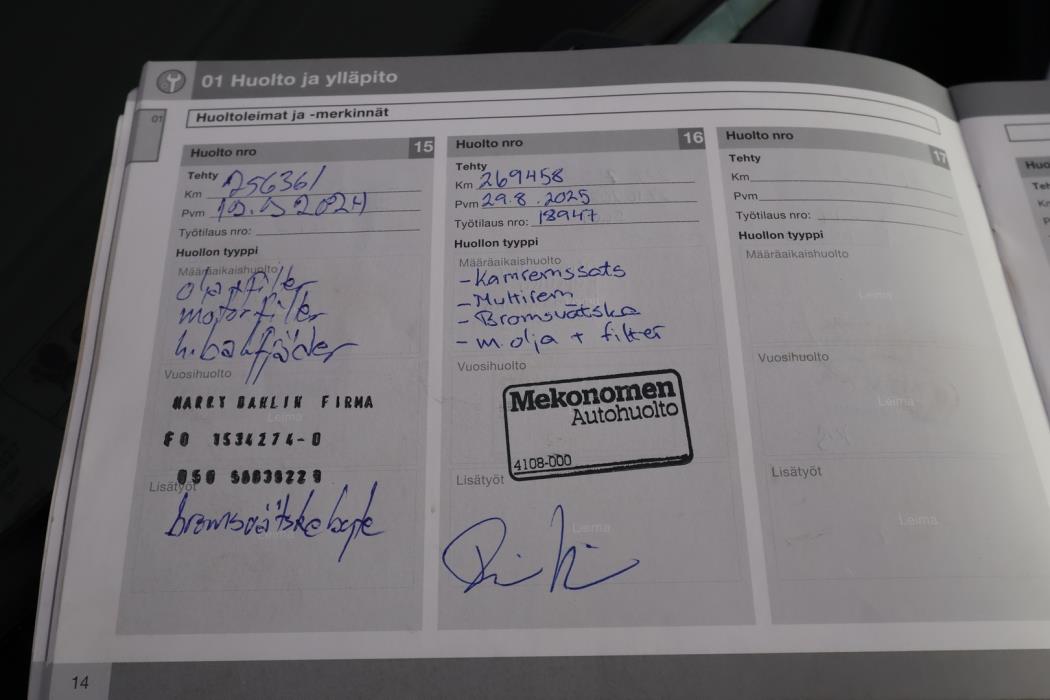 01 Huolto ja ylläpito
01
Huoltoleimat ja -merkinnät
Huolto nro 15
Tehty
Km 256361
Pvm 2024
Työtilaus nro:
Huollon tyyppi
Määräaikaishuolto
olja+filter
motorfilter
h.bakfjäder
Vuosihuolto
HARRY DAHLIN FIRMA
FO 1534274-0
Leima
Lisätyöt
bromsvätskebyte
Huolto nro 16
Tehty
Km 269458
Pvm 29.8.2025
Työtilaus nro: 18947
Huollon tyyppi
Määräaikaishuolto
-Kamremssats
-Multirem
-Bromsvätska
-m.olja + filter
Vuosihuolto
Mekonomen
Autohuolto
4108-000
Lisätyöt
Leima
Huolto nro 17
Tehty
Km
Pvm
Työtilaus nro:
Huollon tyyppi
Määräaikaishuolto
Leima
Vuosihuolto
Leima
Lisätyöt
Leima
14